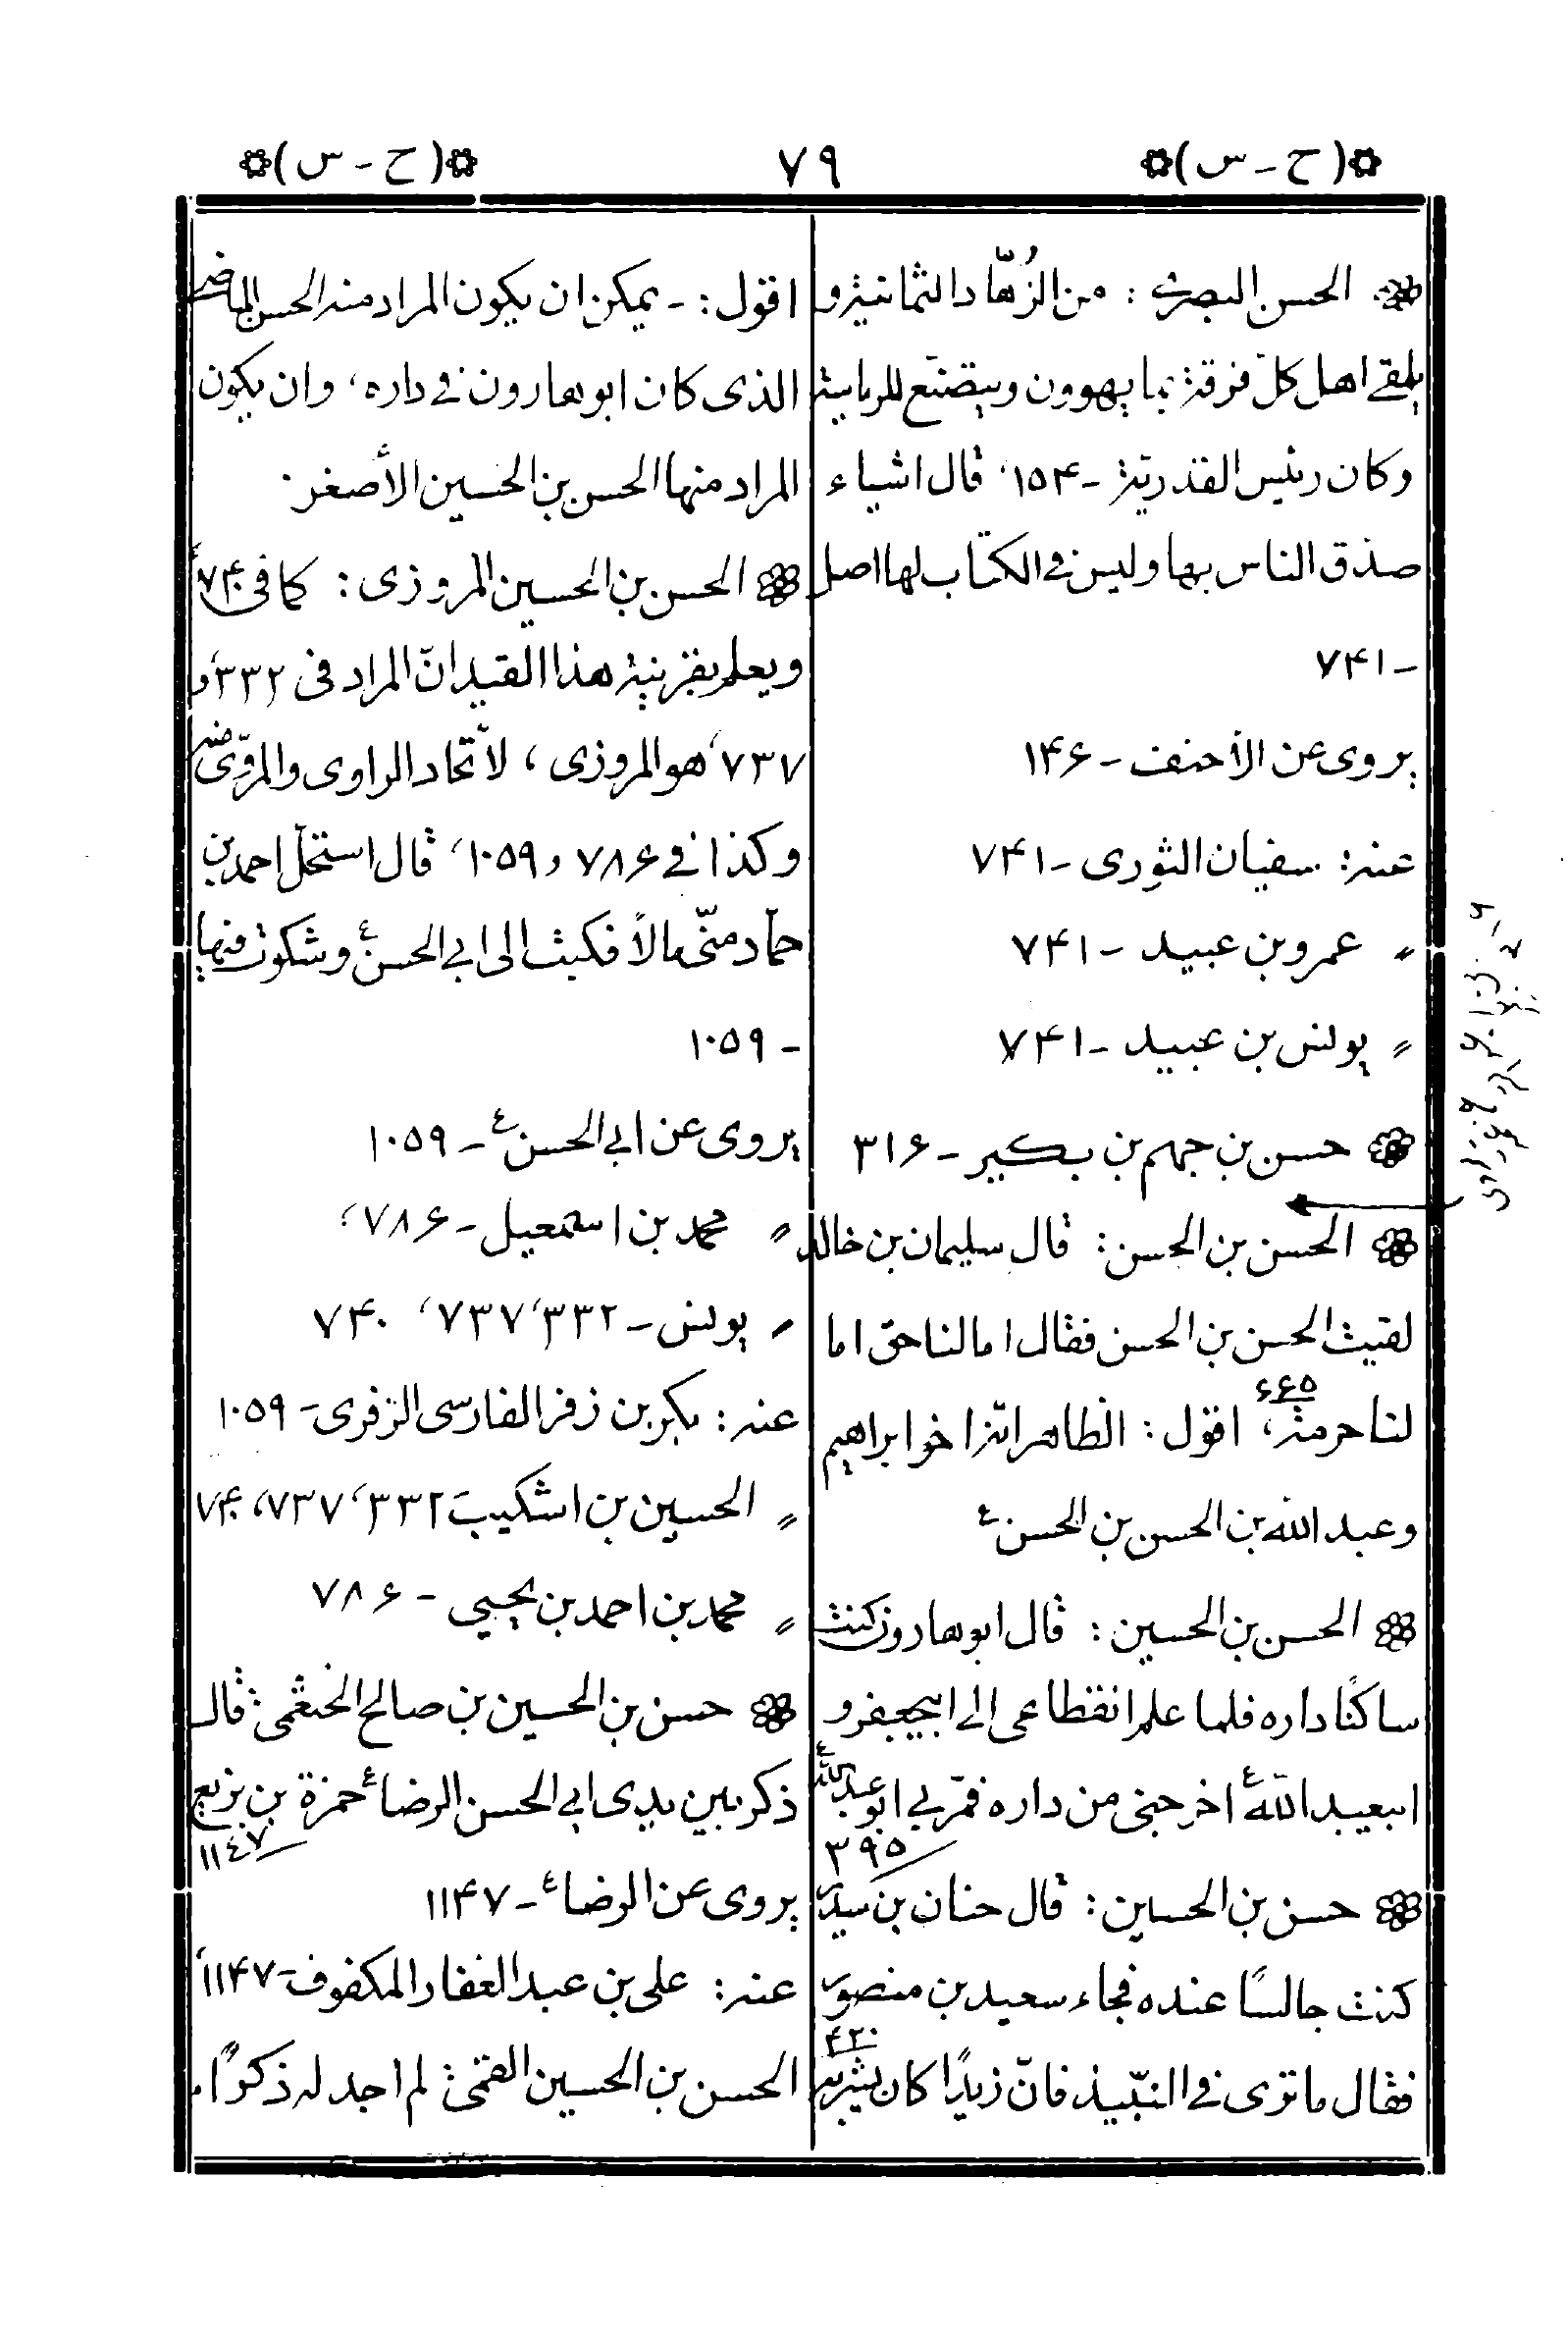 ❊(ح - س)❊
٧٩
❊(ح - س)❊
❊ الحسن البصرى : من الزُهّاد الثمانية و
يلقى اهل كلّ فرقة بما يهوون ويتصنّع للرياسة
وكان رئيس القدريّة - ١٥۴، قال اشياء
صدّق الناس بها وليس فى الكتاب لها اصل
- ٧۴١
يروى عن الأحنف - ١۴۶
عنه: سفيان الثورى - ٧۴١
〃 عمرو بن عبيد - ٧۴١
〃 يونس بن عبيد - ٧۴١
❊ حسن بن جهم بن بكير - ٣١۶
❊ الحسن بن الحسن: قال سليمان بن خالد
لقيت الحسن بن الحسن فقال اما لنا حق اما
لنا حرمة، اقول: الظاهر انّه اخو ابراهيم
وعبد الله بن الحسن بن الحسن ع
❊ الحسن بن الحسين: قال ابو هارون كنت
ساكنًا داره فلما علم انقطاعى الى ابيجعفر و
ابيعبد الله ع اخرجنى من داره فمرّ بى ابو عبد الله ع
٣٩٥
❊ حسن بن الحسين: قال حنان بن سدير
كنت جالسًا عنده فجاء سعيد بن منصور
۴٢٠
فقال ما ترى فى النبيذ فانّ زيدًا كان يشربه
اقول: - يمكن ان يكون المراد منه الحسن الماضى
الذى كان ابو هارون فى داره، وان يكون
المراد منها الحسن بن الحسين الأصغر.
❊ الحسن بن الحسين المروزى: كما فى ٧۴٠
ويعلم بقرينة هذا القيد انّ المراد فى ٣٣٢ و
٧٣٧، هو المروزى، لاتّحاد الراوى والمروّى عنه
وكذا فى ٧٨۶ و ١٠٥٩، قال استحلّ احمد بن
حمّاد منّى مالاً فكتبت الى ابى الحسن ع وشكوت فيها
- ١٠٥٩
يروى عن ابى الحسن ع - ١٠٥٩
〃 محمد بن اسمعيل - ٧٨۶،
〃 يونس - ٣٣٢، ٧٣٧، ٧۴٠
عنه: بكر بن زفر الفارسى الزفرى - ١٠٥٩
〃 الحسين بن اشكيب - ٣٣٢، ٧٣٧، ٧۴٠
〃 محمد بن احمد بن يحيى - ٧٨۶
❊ حسن بن الحسين بن صالح الخثعمى: قال
ذكر بين يدى ابى الحسن الرضا ع حمزة بن بزيع
١١٤٧
يروى عن الرضا ع - ١١۴٧
عنه: على بن عبد الغفار المكفوف - ١١۴٧،
الحسن بن الحسين القمى: لم اجد له ذكرًا.